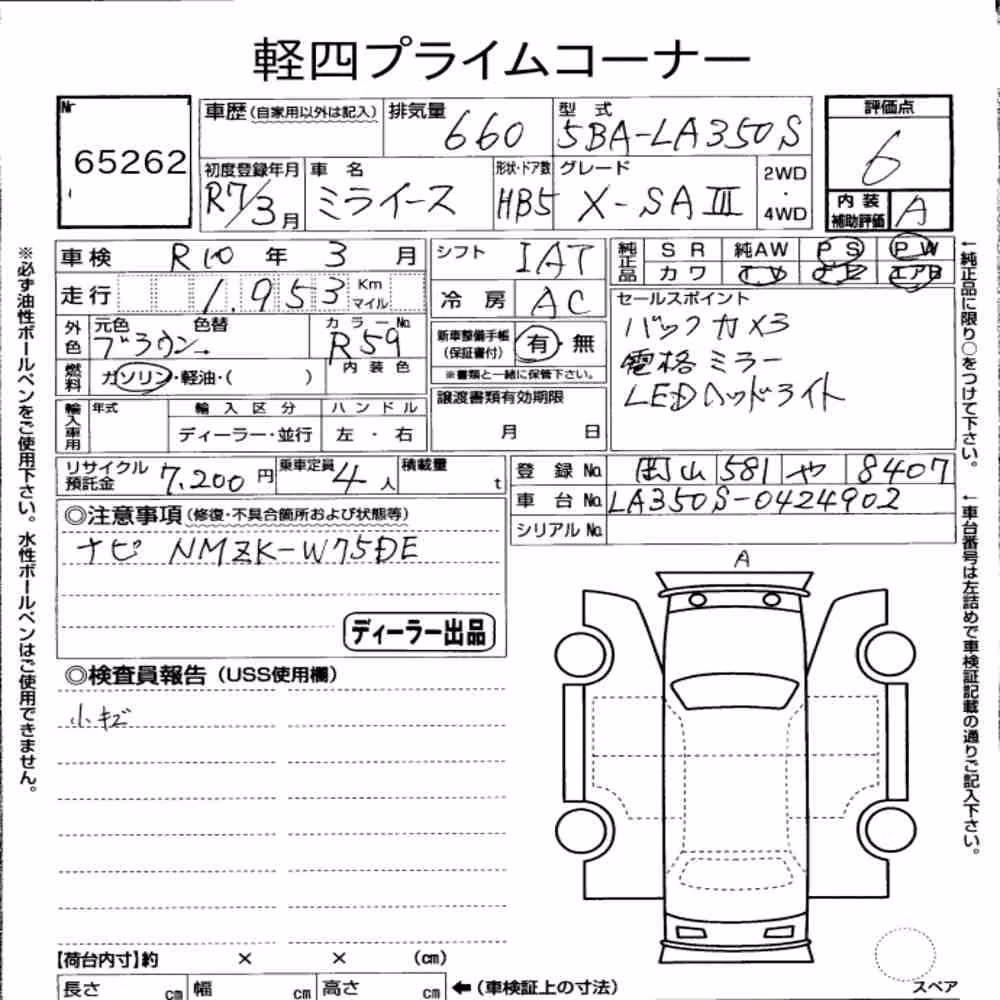 軽四プライムコーナー
Nr 65262
車歴(自家用以外は記入) 排気量 660 型式 5BA-LA350S 評価点 6
初度登録年月 R7/3月 車名 ミライース 形状・ドア数 HB5 グレード X-SAⅢ 2WD・4WD 内装補助評価 A
車検 R10年3月 シフト IAT 純正品 SR 純AW PS PW
カワ TV ナビ エアB
走行 1,953 Km マイル 冷房 AC
セールスポイント
バックカメラ
電格ミラー
LEDヘッドライト
外色 元色 色替 ブラウン カラーNo. R59
新車整備手帳(保証書付) 有・無
※書類と一緒に保管下さい。
燃料 ガソリン・軽油・( ) 内装色
譲渡書類有効期限
月 日
輸入車用 年式 輸入区分 ハンドル
ディーラー・並行 左・右
リサイクル預託金 7,200円 乗車定員 4人 積載量 t
登録No. 岡山 581 や 8407
車台No. LA350S-0424902
シリアルNo.
◎注意事項(修復・不具合箇所および状態等)
ナビ NMZK-W75DE
ディーラー出品
◎検査員報告(USS使用欄)
小キズ
A
【荷台内寸】約 × × (cm)
長さ cm 幅 cm 高さ cm ←(車検証上の寸法)
スペア
※必ず油性ボールペンをご使用下さい。水性ボールペンはご使用できません。
↑純正品に限り○をつけて下さい。
↑車台番号は左詰めで車検証記載の通りご記入下さい。